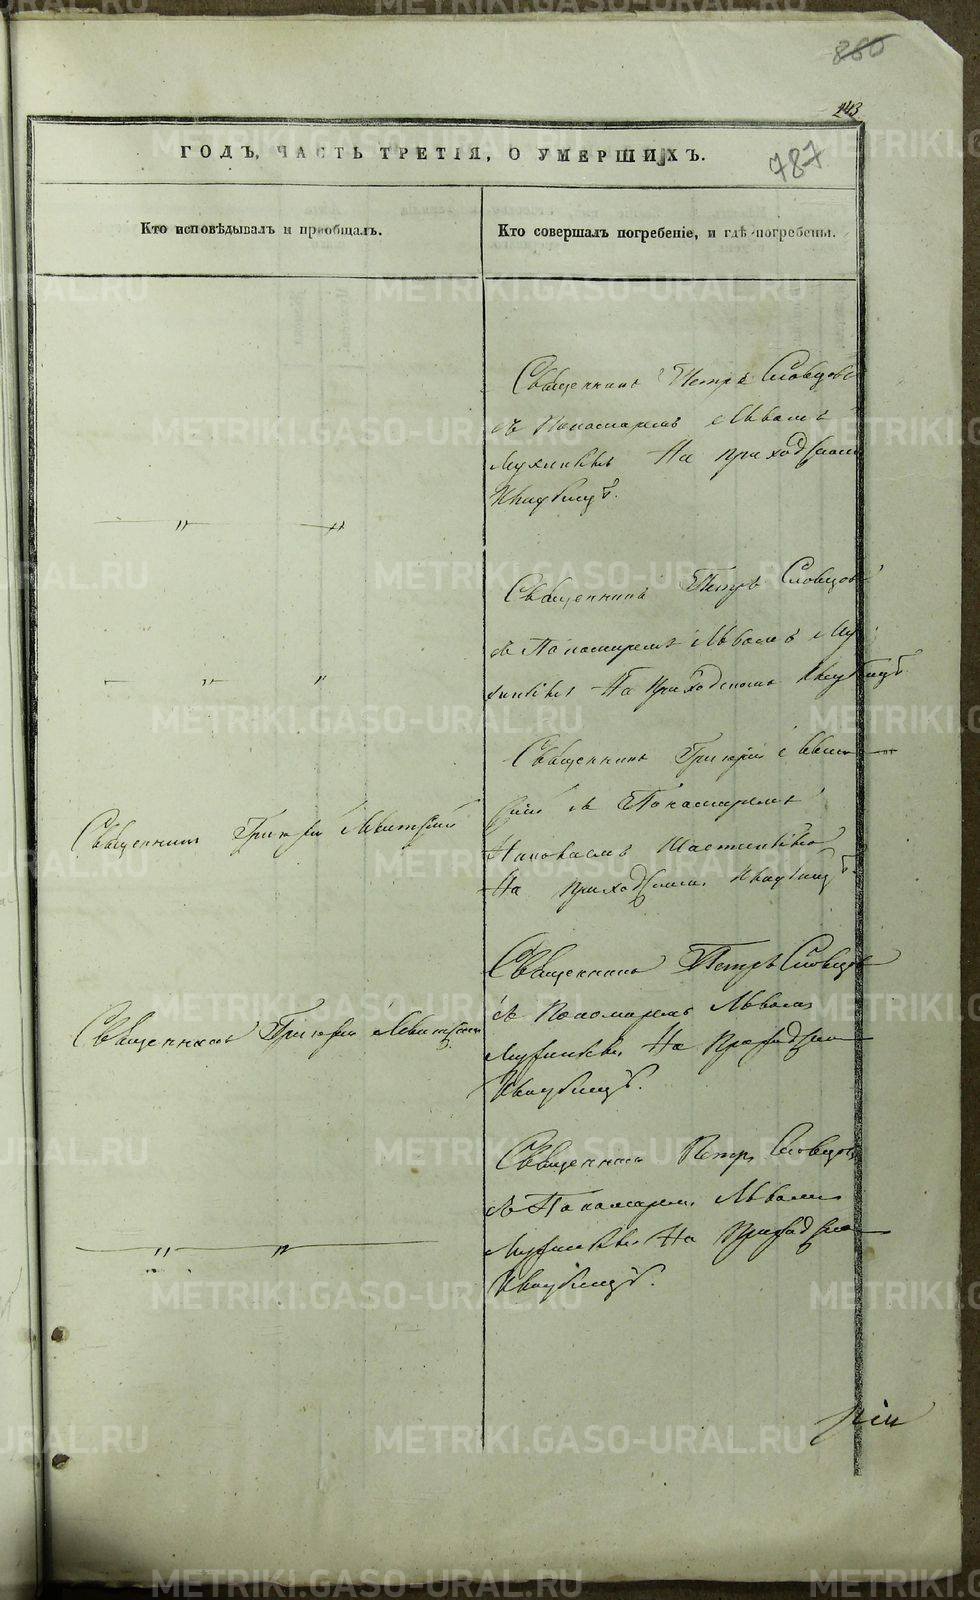 860
143
787
ГОДЪ, ЧАСТЬ ТРЕТІЯ, О УМЕРШИХЪ.
Кто исповѣдывалъ и пріобщалъ.
Кто совершалъ погребеніе, и гдѣ погребены.
Священникъ Петръ Словцовъ
съ Пономаремъ Львомъ
На приходскомъ
Кладбищѣ.
Священникъ Петръ Словцовъ
съ Пономаремъ Львомъ
На Приходскомъ Кладбищѣ
Священникъ Григорій Левит
скій съ Пономаремъ
На приходскомъ Кладбищѣ.
Священникъ Григорій Левитскій
Священникъ Петръ Словцовъ
съ Пономаремъ Львомъ
На Приходском
Кладбищѣ.
Священникъ Григорій Левитскій
Священникъ Петръ Словцовъ
съ Пономаремъ Львомъ
На Приходском
Кладбищѣ.
METRIKI.GASO-URAL.RU